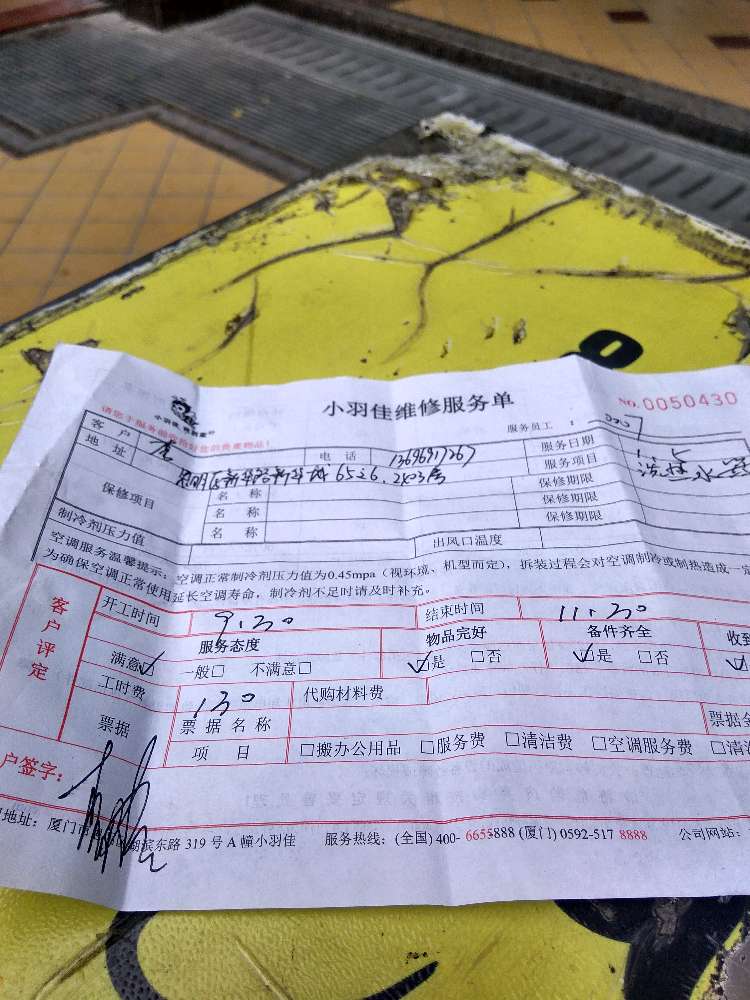 小羽佳维修服务单
NO. 0050430
请您于服务前收拾好您的贵重物品!
服务员工:
客户 电话 13696917267 服务日期 11.5
地址 思明区新华路新华城 6526.2803房 服务项目 洗热水器
保修项目 名称 保修期限
名称 保修期限
名称 保修期限
制冷剂压力值 出风口温度
空调服务温馨提示:空调正常制冷剂压力值为0.45mpa(视环境、机型而定),拆装过程会对空调制冷或制热造成一定
为确保空调正常使用延长空调寿命,制冷剂不足时请及时补充。
客户评定
开工时间 9:30 结束时间 11:30
服务态度 物品完好 备件齐全 收到
满意☑ 一般□ 不满意□ ☑是 □否 ☑是 □否
工时费 130 代购材料费
票据 票据名称 票据金
项目 □搬办公用品 □服务费 □清洁费 □空调服务费 □清洁
户签字:
地址:厦门市 湖滨东路 319 号 A 幢小羽佳 服务热线:(全国) 400- 6655888 (厦门) 0592-517 8888 公司网站: